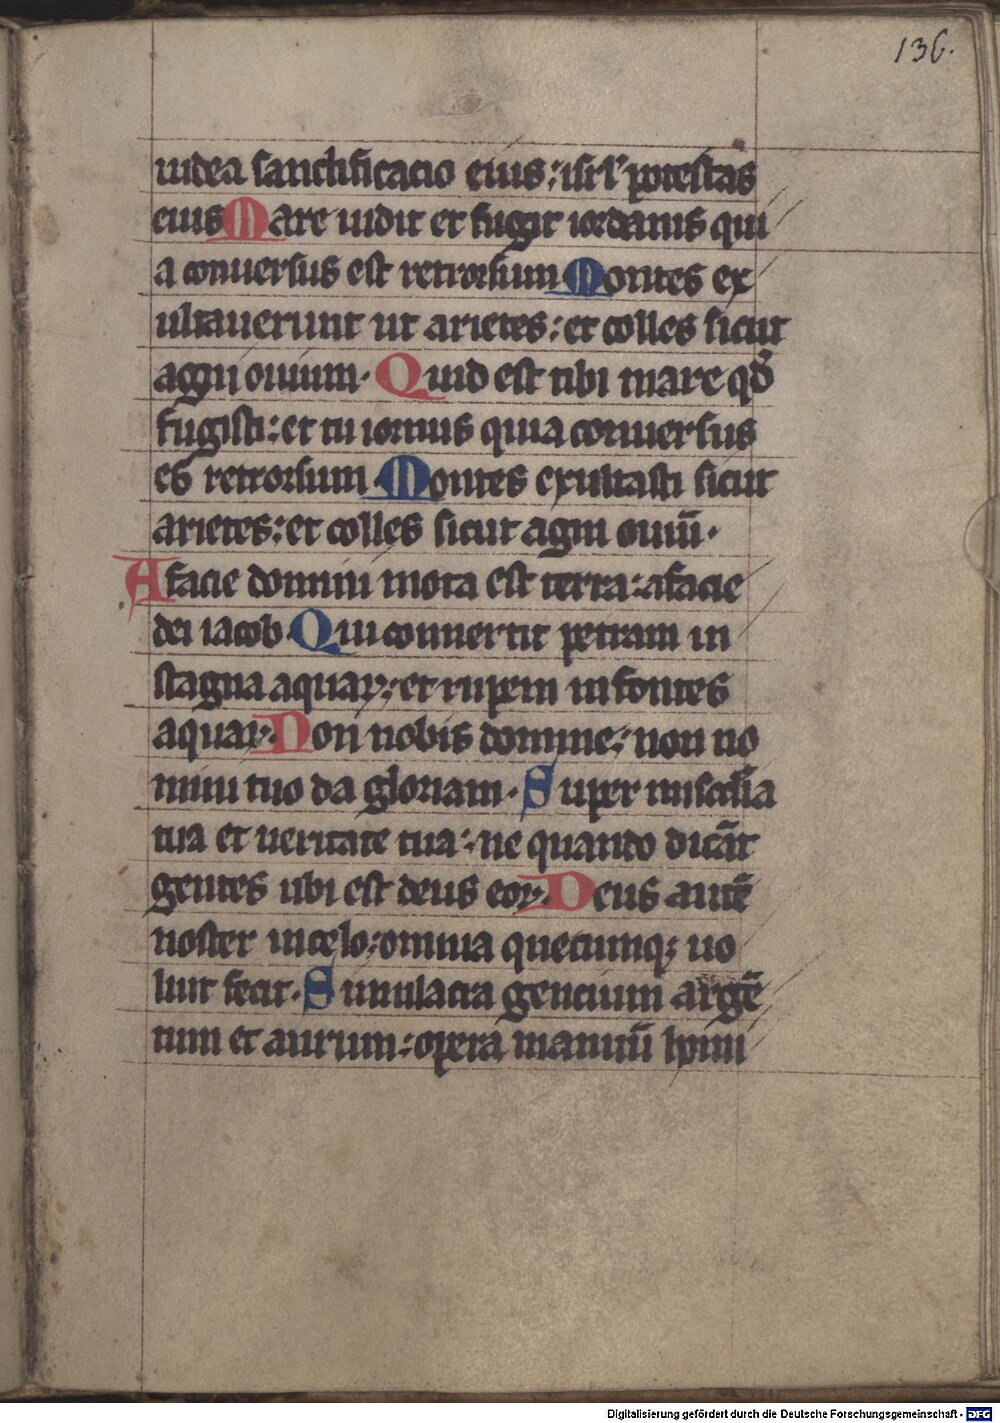 136.
iudea sanctificacio eius: isrl' potestas
eius Mare uidit et fugit iordanis qui
a conuersus est retrorsum Montes ex
ultauerunt ut arietes: et colles sicut
agni ouium. Quid est tibi mare qd'
fugisti: et tu iornus quia conuersus
es retrorsum Montes exultasti sicut
arietes: et colles sicut agni ouiū.
A facie domini mota est terra: afacie
dei iacob Qui conuertit petram in
stagna aquaꝝ: et rupem in fontes
aquaꝝ. Non nobis domine: non no
mini tuo da gloriam. Super miscd'ia
tua et ueritate tua: ne quando dicāt
gentes ubi est deus eoꝝ. Deus autē
noster in celo: omnia quecumqꝫ uo
luit fecit. Simulacra gencium argē
tum et aurum: opera manuū homi
Digitalisierung gefördert durch die Deutsche Forschungsgemeinschaft - DFG